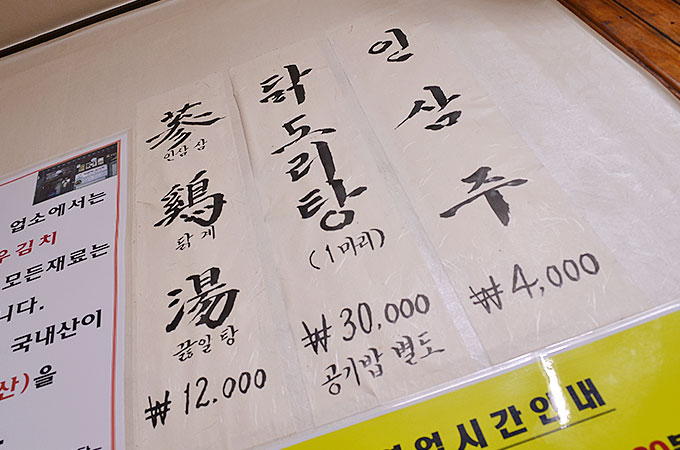 업소에서는
김치
모든재료는
니다.
국내산이
산)을
蔘
인삼 삼
鷄
닭 계
湯
끓일 탕
₩12.000
닭도리탕
(1마리)
₩30.000
공기밥 별도
인삼주
₩4,000
업시간안내